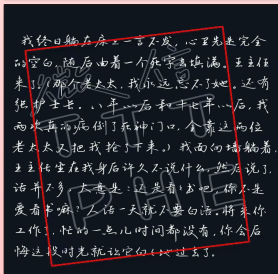 我终日躺在床上一言不发，心里先是完全
的空白，随后由着一个死字去填满。王主任
来了，那个老太太，我永远忘不了她。还有
张护士长。八年以后和十七年以后，我
两次真的病倒了死神门口，全靠这两位
老太太又把我抢了下来。）我面向墙躺着，
王主任坐在我身后许久不说什么，然后说了，
话并不多，大意是：还是看看书吧，你不是
爱看书嘛？人活一天就不要白活。将来你
工作了，忙的一点儿时间都没有，你会后
悔这段时光就让它白白地过去了。